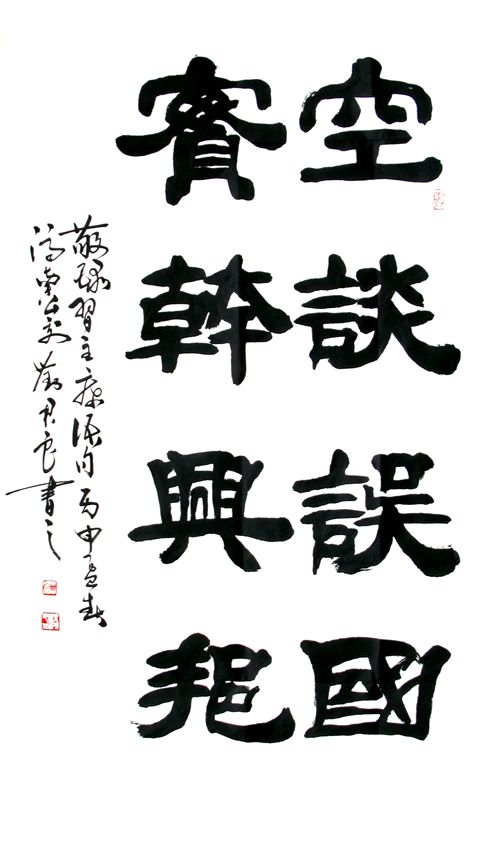 空談誤國
實幹興邦
敬録習主席語句丙申孟春
君良書之